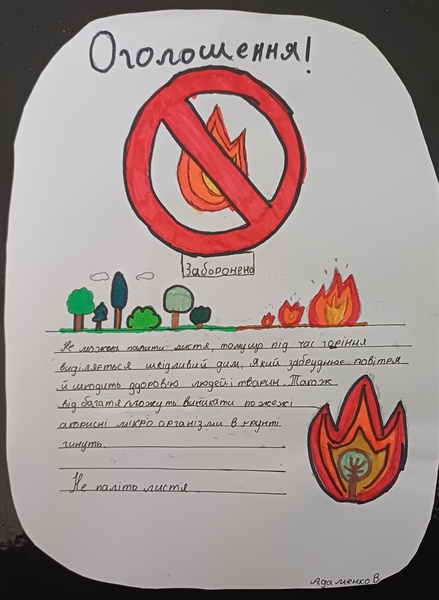 Оголошення!
Заборонено
Не можна палити листя, тому що під час горіння
виділяється шкідливий дим, який забруднює повітря
й шкодить здоров'ю людей і тварин. Також
від багаття можуть виникати пожежі
а корисні мікро організми в ґрунті
гинуть.
Не паліть листя
Адаменко В